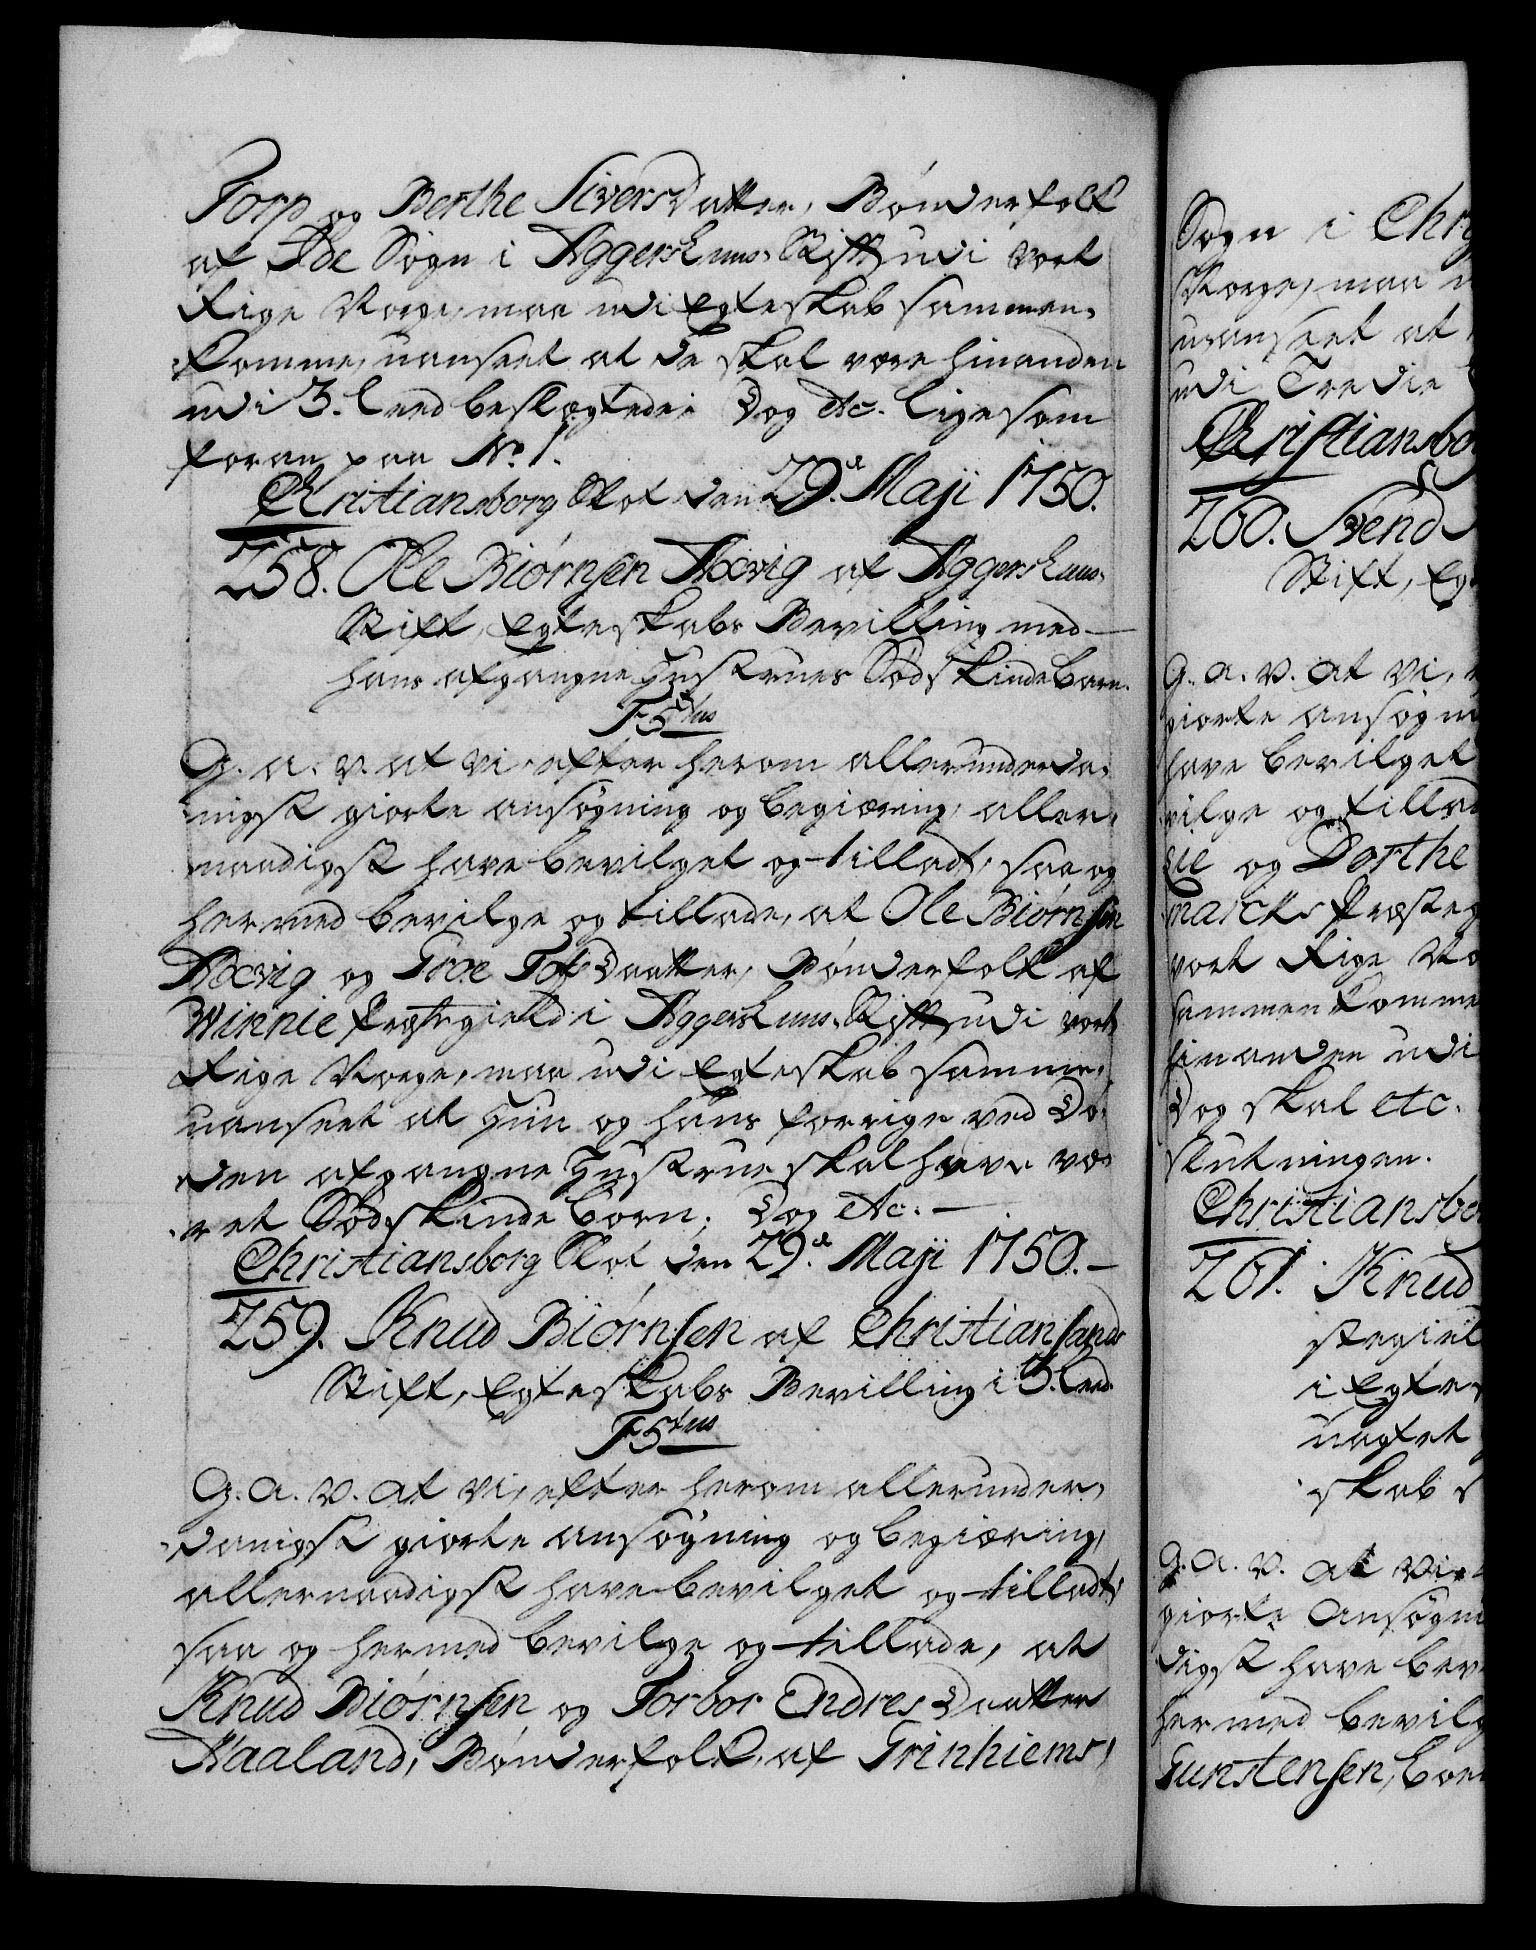 Torp og Berthe SiversDatter, Bønderfolk
af Ide Sogn i Aggershuus-Stift udi Vort
Rige Norge, maa udi Egteskab sammen-
komme, uanseet at de skal være hinanden
udi 3. Leed beslægtede. Dog etc. ligesom
foran paa No. 1.
Christiansborg Slot den 29.d Maji 1750.
258. Ole Biørnsen Axvig af Aggershuus-
Stift, Egteskabs Bevilling med
hans afgangne Hustrues Sødskindebarn.
F5tus
G. a. v. at vi, efter herom allerunderda-
nigst giorte ansøgning og begiæring, aller-
naadigst have bevilget og tilladt, saa og
hermed bevilge og tillade, at Ole Biørnsen
Axvig og Groe Datter, Bønderfolk af
Winnie Præstegield i Aggershuus-Stift udi vort
Rige Norge, maa udi Egteskab samme,
uanseet at hun og hans forrige ved Dø-
den afgangne Hustrue skal have væ-
ret Sødskindebørn; Dog etc.
Christiansborg Slot den 29.d Maji 1750.
259. Knud Biørnsen af Christiansands
Stift, Egteskabs Bevilling i 3. Leed.
F5tus
G. a. v. at vi, efter herom allerunder-
danigst giorte ansøgning og begiæring,
allernaadigst have bevilget og tilladt,
saa og hermed bevilge og tillade, at
Knud Biørnsen og Torbor EndresDaatter
Naaland, Bønderfolk, af Grinhiems,
Sogn i Chr
Norge, maa u
uanseet at
udi Tredie
Christiansbo
260. Svend
Stift, Eg
G. a. v. at vi,
giorte ansøgn
have bevilget
vilge og tillad
og Dorthe
marcks Præsteg
vort Rige No
sammenkomme
hinanden udi
Dog skal etc.
slutningen.
Christiansbo
261. Knud
stegiel
i Egtes
uagtet
skab s
G. a. v. at vi
giorte Ansøgni
digst have bev
hermed bevilg
Gunstensen,